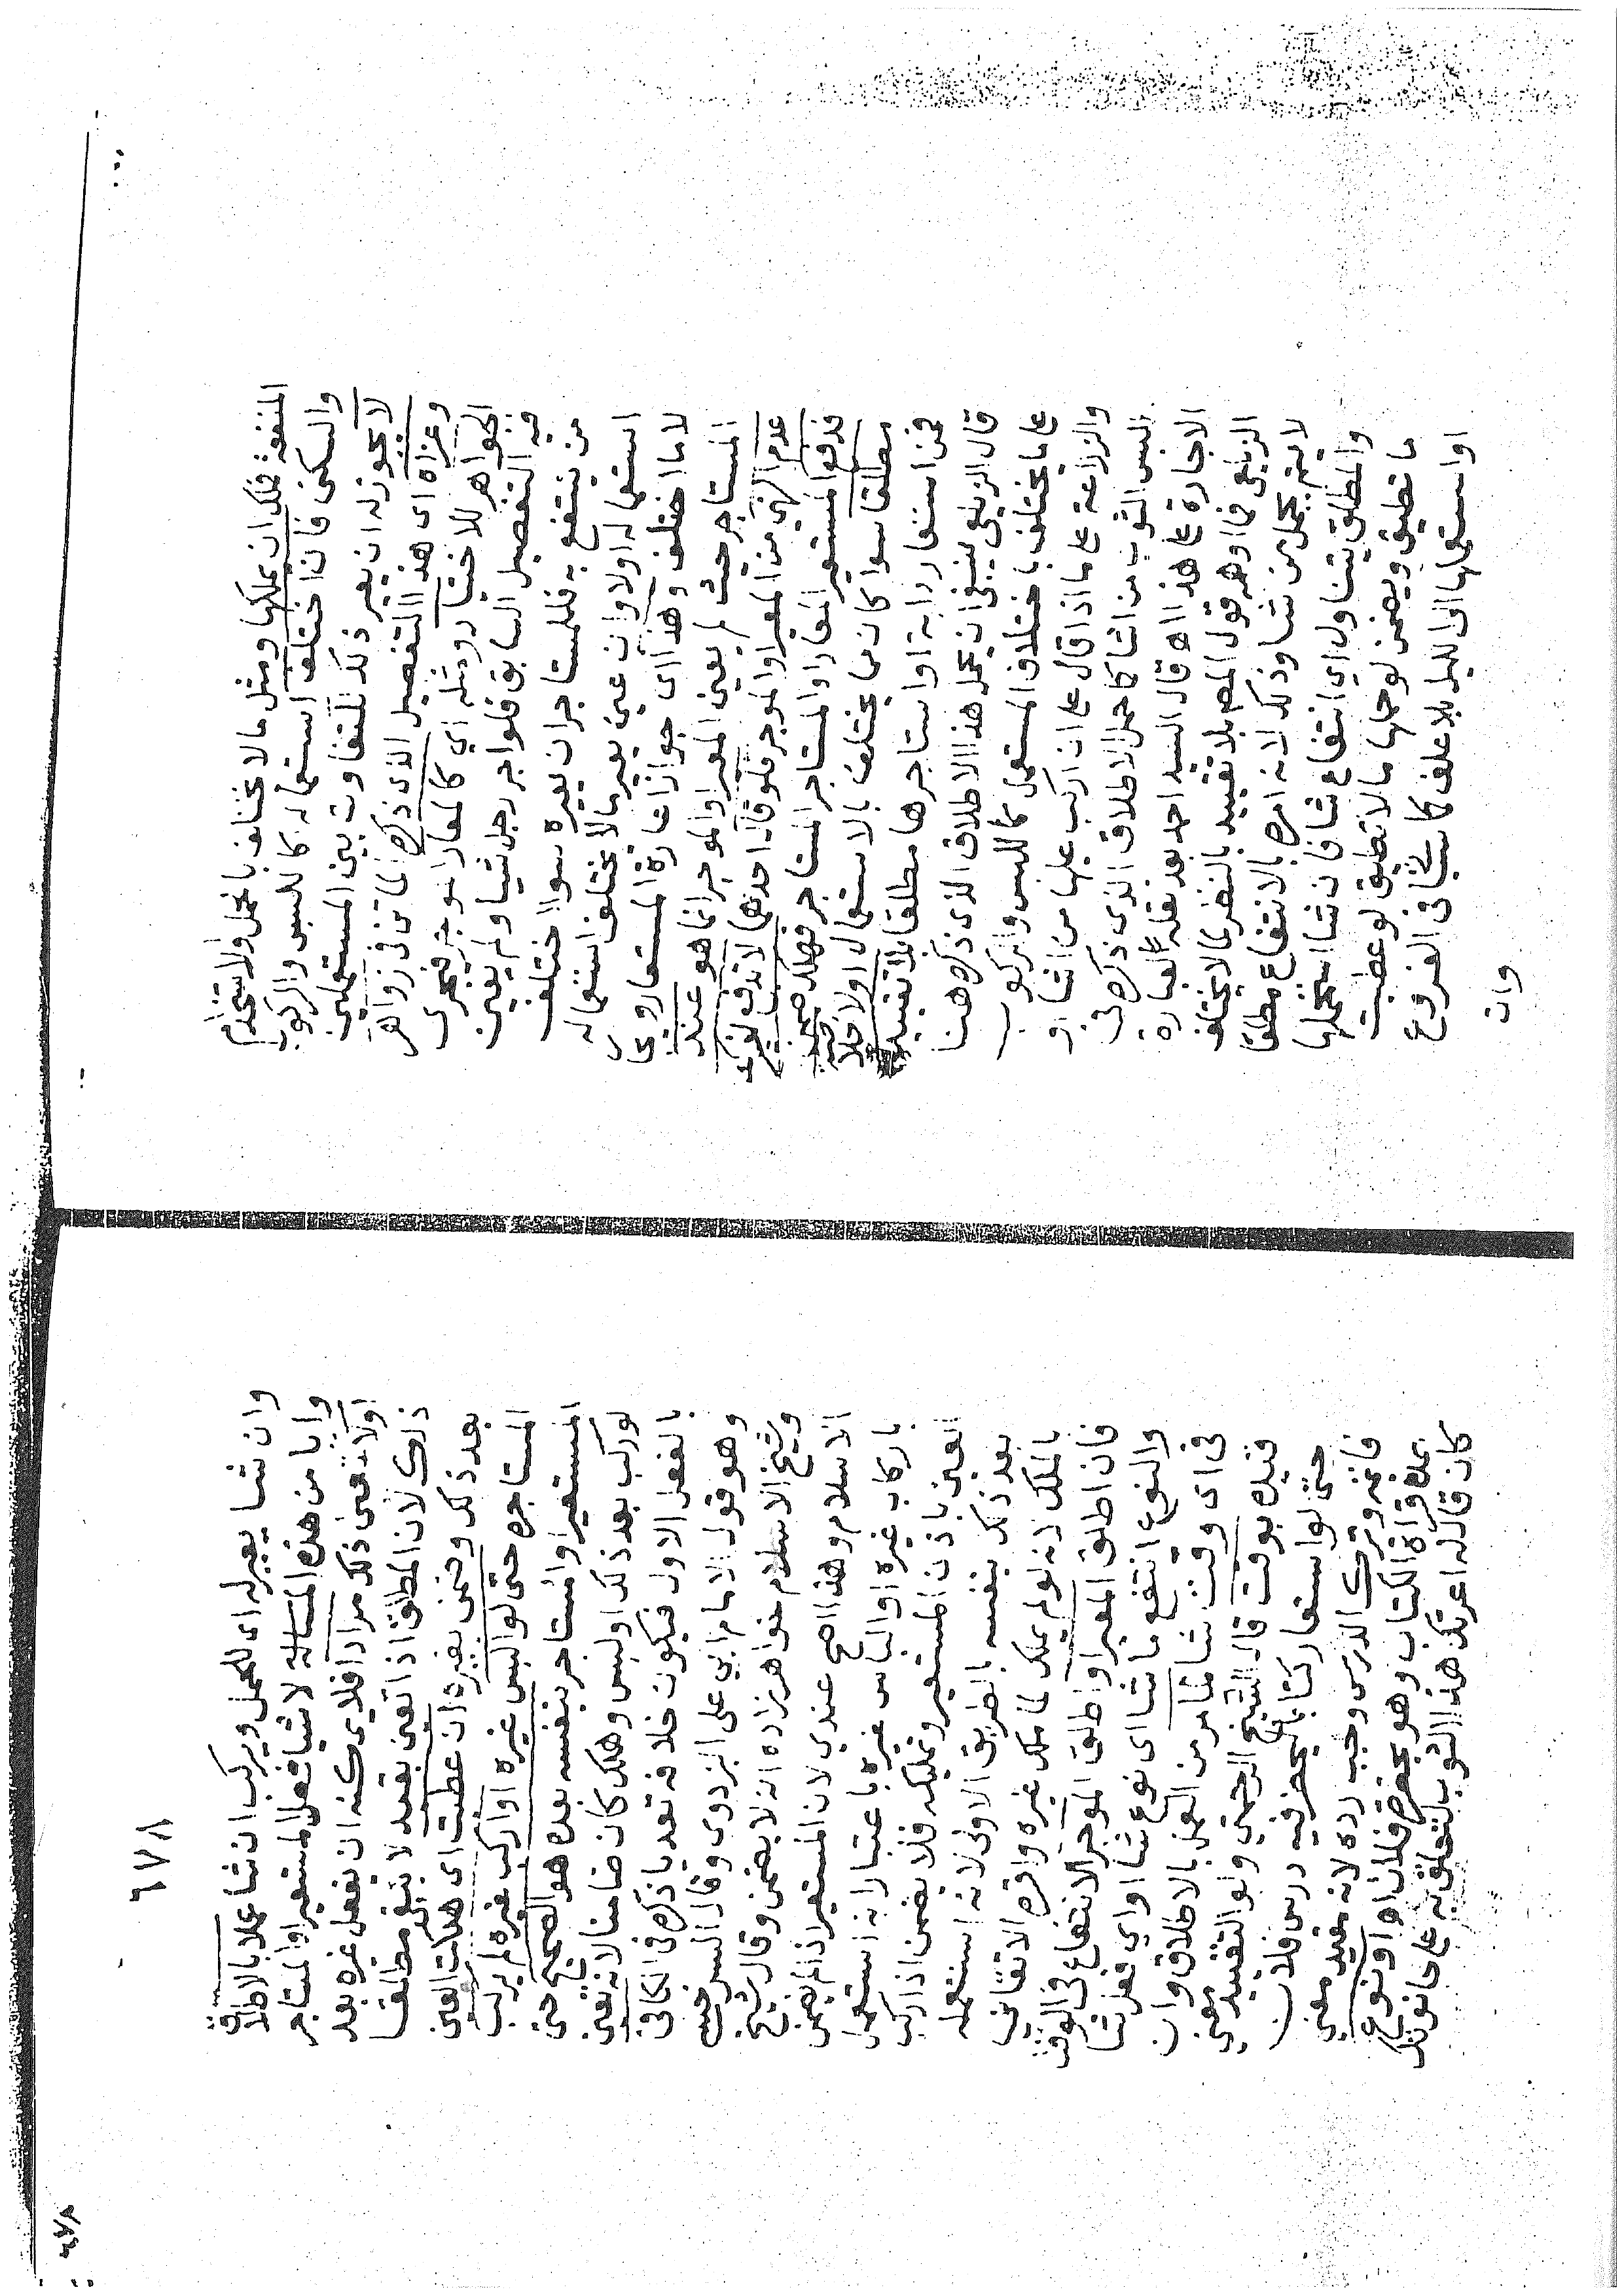 المنفعة فملك ان يملكها ومثل مالا يختلف بالحمل والاستخدام
والسكنى فان اختلف استعماله كاللبس والركوب
لا يجوز له ان يعير ذلك للتفاوت بين المستعملين
وعزاه اى هذا التفصيل الذى ذكره الماتن فى زواهر
الجواهر للاختيار ومثله اي كالمعار الموجر فيجرى
فيه التفصيل السابق فلو اجر رجل شيا ولم يعين
من ينتفع به فللمستاجر ان يعيره سوا اختلف
استعماله اولا وان عين يعير مالا يختلف استعماله
لا ما اختلف وهذا اى جواز اعارة المستعار و
المستاجر حيث لم يعين المعير او الموجر انما هو عند
عدم النهي من المعير او الموجر فلو قال احدهما لا تدفع لغيرك
فدفع المستعير المعار او المستاجر المستاجر فهلك ضمن
مطلقا سوا كان مما يختلف بالاستعمال اولا خلاصة
فمن استعار دابة او استاجرها مطلقا بلا تقييد
قال الزيلعى ينبغى ان يحمل هذا الاطلاق الذى ذكره هنا
على ما يختلف باختلاف المستعمل كاللبس والركوب
والزراعة على ما اذا قال على ان اركب عليها من اشا و
البس الثوب من اشا كما حمل الاطلاق الذى ذكره فى
الاجارة على هذا اهـ قال السيد احمد بعد نقله لعبارة
الزيلعى قول المص بلا تقييد بالنظر لما لا يختلف
يحمل من شا وذلك لانه امره بالانتفاع مطلقا
والمطلق يتناول اى انتفاع شا فان شا استعملها
ما تطيق ويضمن لو حملها مالا تطيق لو عطبت
او استعملها الى الليل بلا علف كما سياتى فى الفروع
وان
٦٧٨
وان شا يعير له اى للحمل ويركب ان شا عملا بالاطلاق
وايا من هذه المسالة لاشيا فعل المستعير او المستاجر
اولا تعين ذلك مرادا فلا يمكنه ان يفعل غيره بعد
ذلك لان المطلق اذا تعين بقيد لا يبقى مطلقا
بعد ذلك وضمن بغيره ان عطبت اى هلكت العين
المستاجرة حتى لو البس غيره او اركب غيره لم يركب
المستعير او المستاجر بنفسه بعده هو الصحيح حتى
لو ركب بعد ذلك او لبس وهلك كان ضامنا لانه تعين
بالفعل الاول فيكون خلافه تعديا ذكره فى الكافى
وهو قول الامام ابي على البزدوى وقال السرخسى
وشيخ الاسلام خواهر زاده انه لا يضمن وقال شيخ
الاسلام وهذا اصح عندي لان المستعير اذا لم يضمن
باركاب غيره او الباس غيره باعتبار انه استعمل
العين باذن المستعير وتمليكه فلا يضمن اذا ركب
بعد ذلك بنفسه بالطريق الاولى لانه استعمله
بالملك لانه لو لم يملك لما ملك غيره واقره الاتقاني
فان اطلق المعير او اطلق الموجر الانتفاع فى الوقت
والنوع انتفع ما شا اى نوع شا او اي فعل شا
فى اى وقت شا لما مر من العمل بالاطلاق وان
قيده بوقت قال الشيخ الرحمتي ولو التقييد معنى
حتى لو استعار كتابا ليحضر فيه درس فلان
فاتمه وترك الدرس وجب رده لانه مقيد معنى
بمدة قراة الكتاب وهو بحضرة فلان اهـ او نوع
كان قال له اعرتك هذا الثوب لتعلق به على حانوتك
٦٧٨